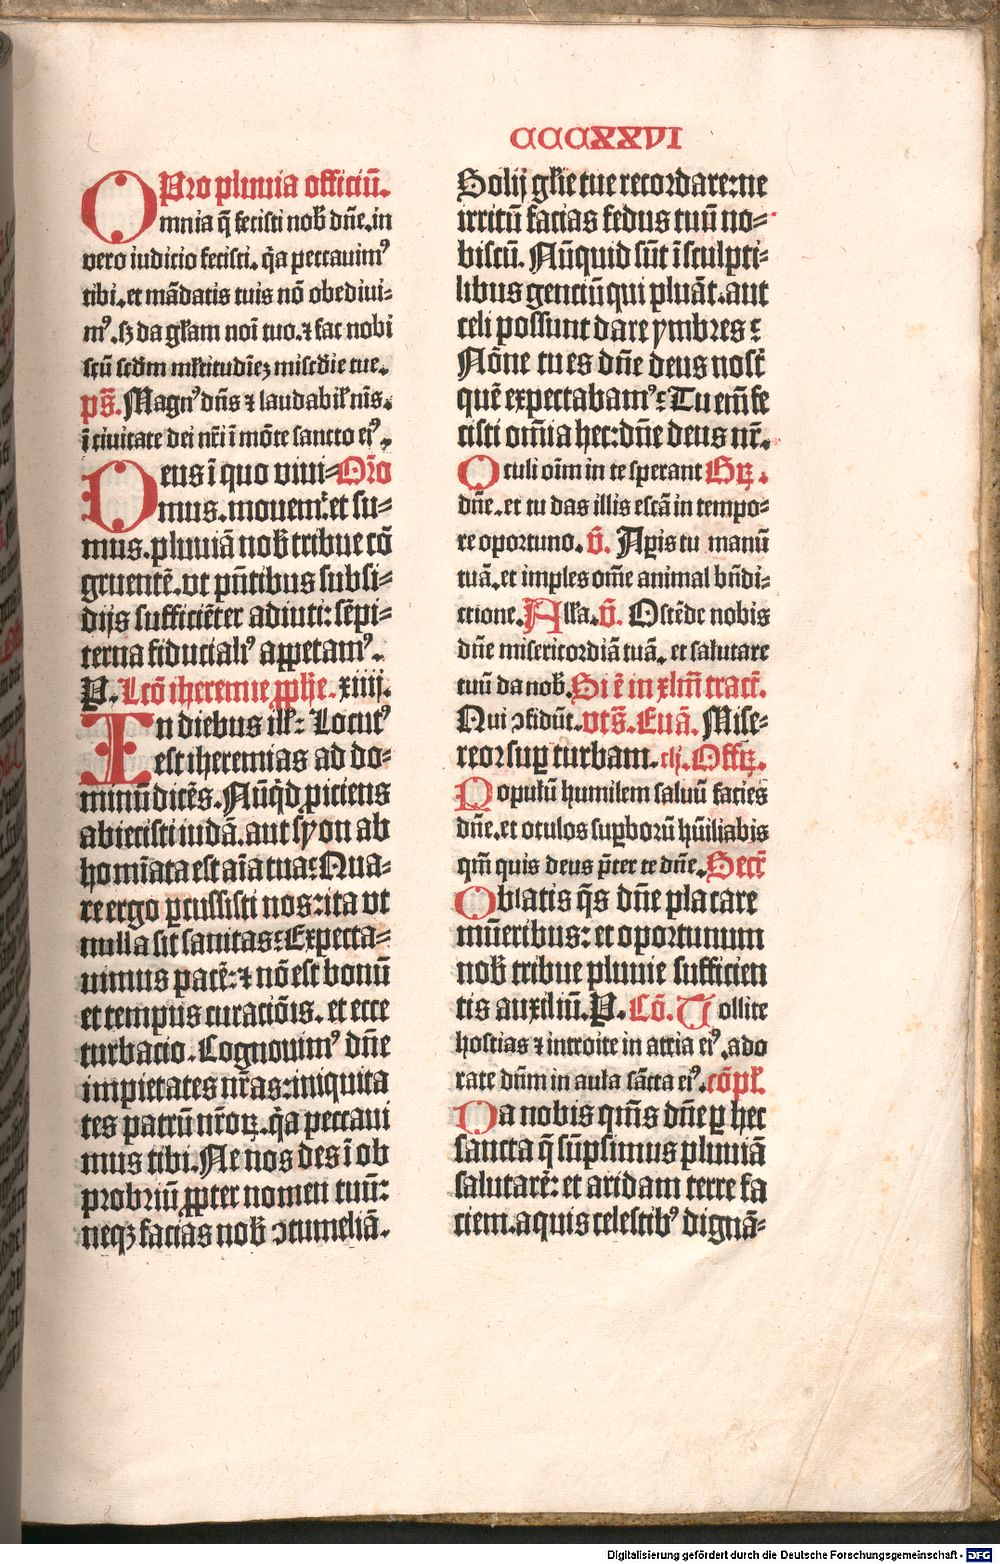 CCCXXVI
Pro pluuia officiū.
Omnia q̄ fecisti nob̄ dn̄e. in
vero iudicio fecisti. q̄a peccauimꝰ
tibi. et mādatis tuis nō obediui⸗
mꝰ. sꝫ da gl̄am noī tuo. ⁊ fac nobi
scū scd̄m ml̄titudīeꝫ misc̄die tue.
ps̄. Magnꝰ dn̄s ⁊ laudabil̄ nīs.
ī ciuitate dei nr̄i ī mōte sancto eiꝰ.
Deus ī quo viui⸗ Or̄o
mus. mouemꝰ. et su⸗
mus. pluuiā nob̄ tribue cō
gruentē. vt pn̄tibus subsi⸗
dijs sufficiēter adiuti: sēpi⸗
terna fiducialiꝰ appetamꝰ.
P. Lcō iheremie ꝓph̄e. xiiij.
In diebus ill̄: Locutꝰ
est iheremias ad do⸗
minū dicēs. Nūq̄d ꝓiciens
abiecisti iudā. aut syon ab
homīata est aīa tua: Qua⸗
re ergo ꝑcussisti nos: ita vt
nulla sit sanitas: Expecta⸗
uimus pacē: ⁊ nō est bonū
et tempus curaciōis. et ecce
turbacio. Cognouimꝰ dn̄e
impietates nr̄as: iniquita
tes patrū nr̄oꝝ. q̄a peccaui
mus tibi. Ne nos des ī ob
probriū ꝓpter nomen tuū:
neqꝫ facias nob̄ ꝯtumeliā.
Solij gl̄ie tue recordare: ne
irritū facias fedus tuū no⸗
biscū. Nūquid sūt īsculpti⸗
libus genciū qui pluāt. aut
celi possunt dare ymbres:
Nōne tu es dn̄e deus nost̄
quē expectabamꝰ: Tu em̄ fe
cisti om̄ia hec: dn̄e deus nr̄.
Oculi oīm in te sperant Gꝝ.
dn̄e. et tu das illis escā in tempo⸗
re oportuno. v̄. Aꝑis tu manū
tuā. et imples om̄e animal bn̄di⸗
ctione. Alla. v̄. Ostēde nobis
dn̄e misericordiā tuā. et salutare
tuū da nob̄. Si ē in xlm̄ tract̄.
Qui ꝯfidūt. vts̄. Euā. Mise⸗
reor suꝑ turbam. clj. Offꝝ.
Populū humilem saluū facies
dn̄e. et oculos suꝑborū hūiliabis
qm̄ quis deus p̄ter te dn̄e. Secr̄
Oblatis q̄s dn̄e placare
mūeribus: et oportunum
nob̄ tribue pluuie sufficien
tis auxiliū. P. Cō. Tollite
hostias ⁊ introite in atria eiꝰ. ado
rate dn̄m in aula sācta eiꝰ. cōpl̄.
Da nobis qm̄s dn̄e ꝑ hec
sancta q̄ sūpsimus pluuiā
salutarē: et aridam terre fa
ciem. aquis celestibꝰ dignā⸗
Digitalisierung gefördert durch die Deutsche Forschungsgemeinschaft - DFG